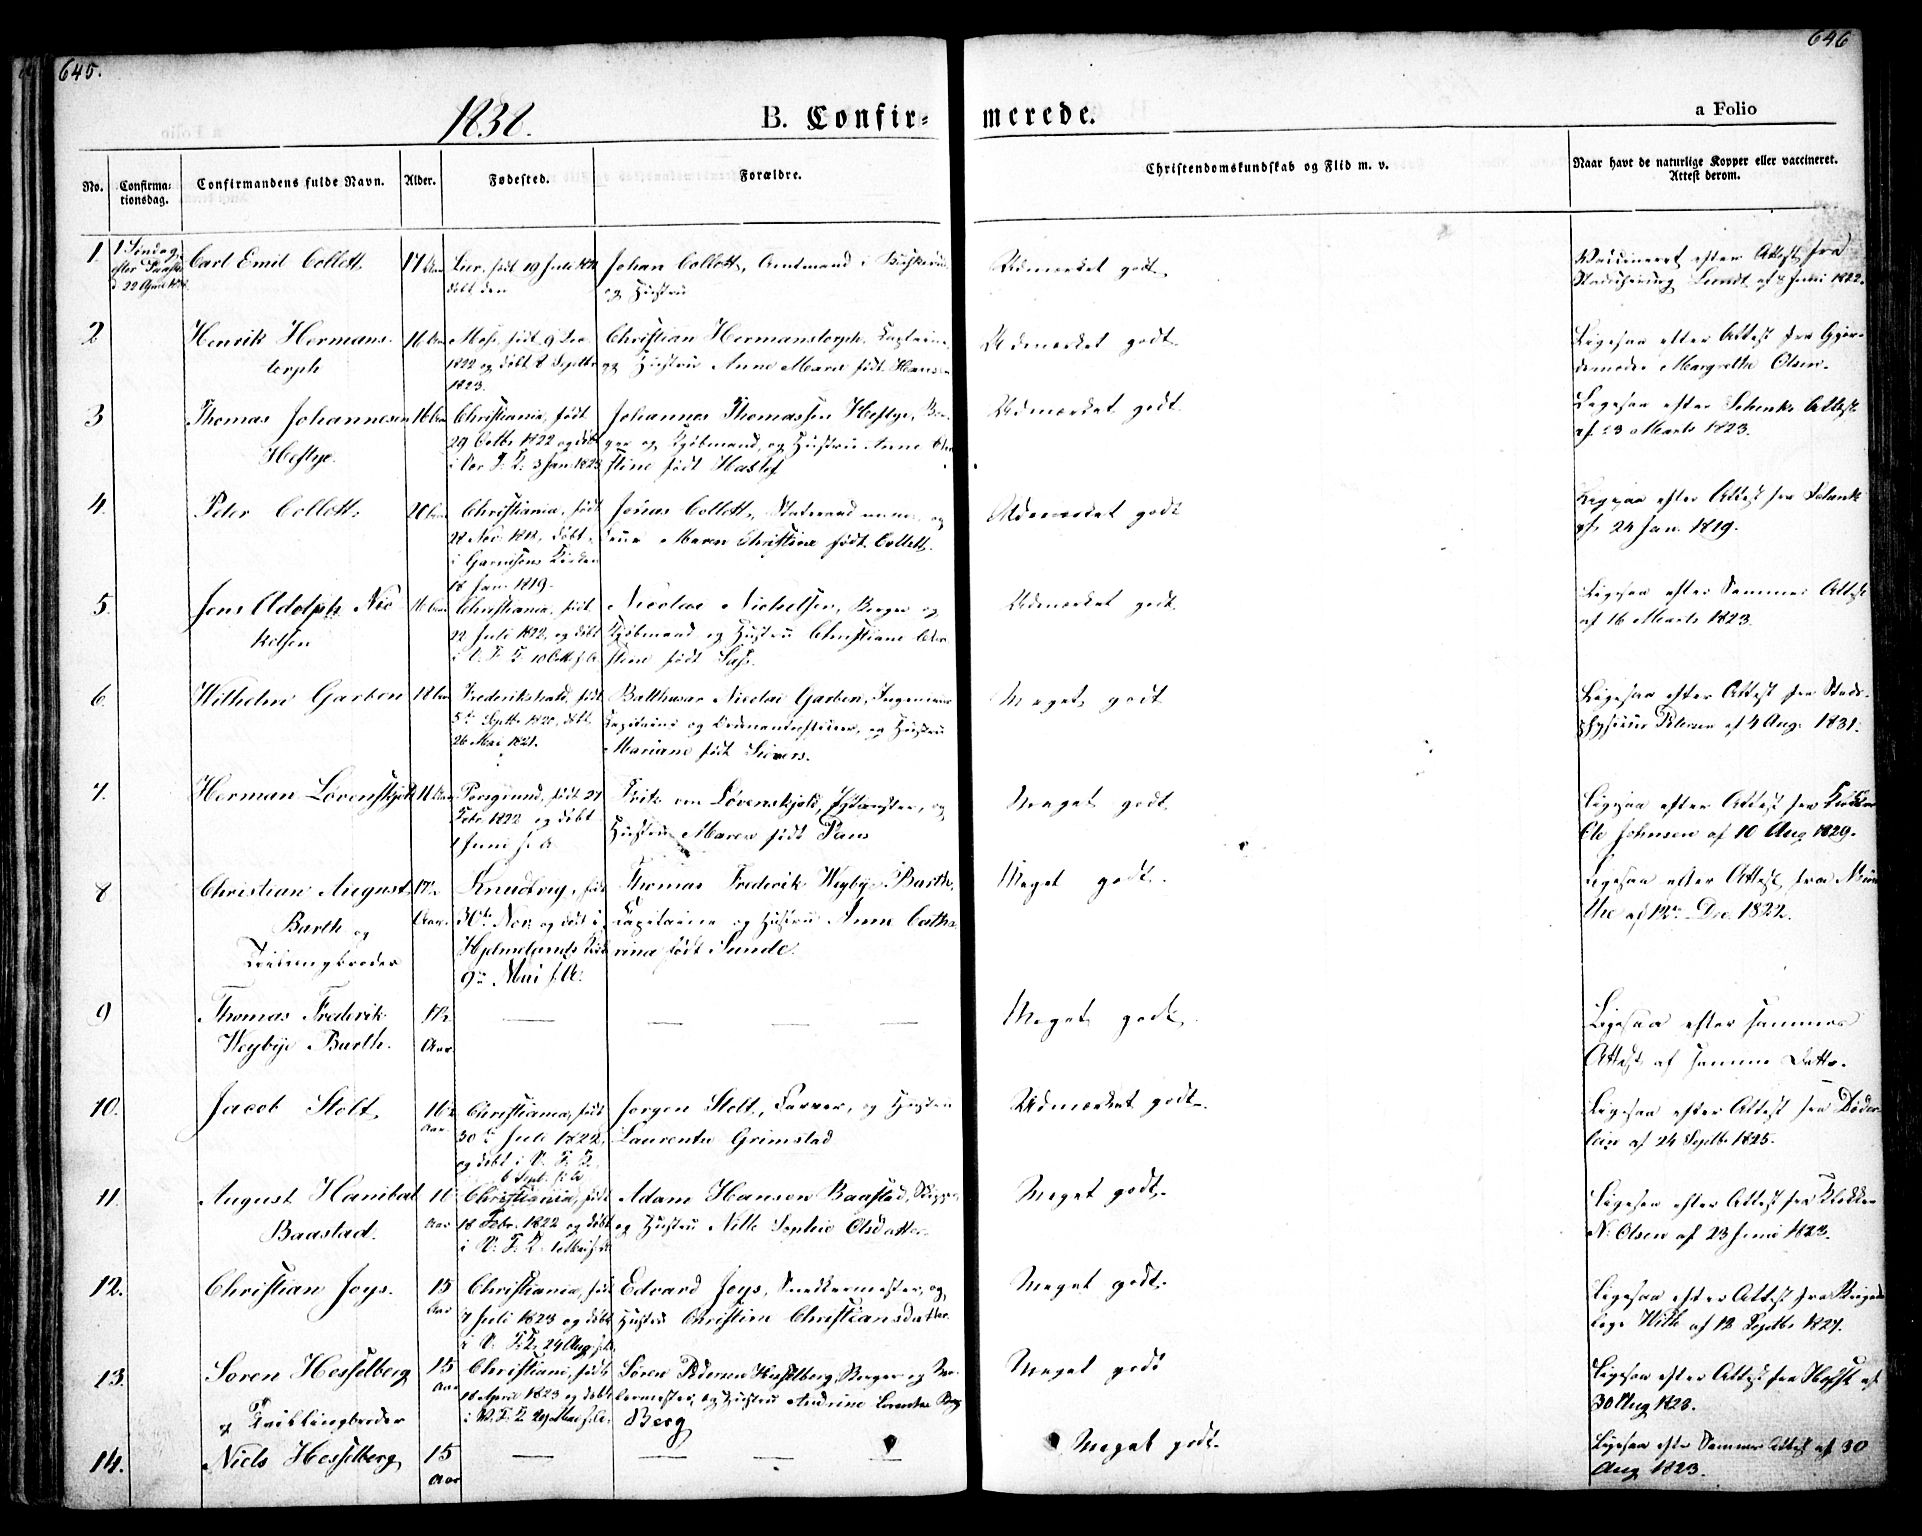 645.
646
1838.
B. Confir-
merede.
a Folio
No.
Confirma-
tionsdag.
Confirmandens fulde Navn.
Alder.
Fødested.
Forældre.
Christendomskundskab og Flid m. v.
Naar havt de naturlige Kopper eller vaccineret.
Attest derom.
1
1 Søndag
efter Paaske
d 22 April
Carl Emil Collett
17 Aar
født 19 Juli
døbt den
Johan Collett, Amtmand i Buskerud
og Hustru
Udmærket godt
Vaccineret efter Attest fra
Lundt af Juni 1822.
2
Henrik Hermans-
torph
16 Aar
Moss, født 9 Dec.
1822 og døbt Septbr
1823.
Christian Hermanstorph, Capitaine,
og Hustru Anne Marie født Hansen
Udmærket godt
Ligesaa efter Attest fra Gjor-
demoder Margrethe Olsen.
3
Thomas Johannesen
Heftye.
16 Aar
Christiania, født
29 Octbr 1822 og døbt
i Vor F. K. 3 Jan. 1823
Johannes Thomassen Heftye, Bor-
ger og Kjøbmand, og Hustru Anne Chri
stine født Haslef
Udmærket godt
Ligesaa efter Schenks Attest
af 23 Marts 1823.
4.
Peter Collett.
20 Aar
Christiania, født
Nov. 1818, døbt
i Garnisons Kirken
18 Jan. 1819.
Jonas Collett, Statsraad og
Frue Maren Christine født Collett.
Udmærket godt
Ligesaa efter Attest fra Schenk
af 24 Jan. 1819.
5.
Jens Adolph Nic
kelsen
16 Aar
Christiania, født
12 Juli 1822, og døbt
i V. F. K. 10 Octb s. A.
Nicolai Nickelsen, Borger og
Kjøbmand og Hustru Christiane Chri
stine født Sass.
Udmærket godt.
Ligesaa efter Sammes Attest
af 16 Marts 1823.
6.
Wilhelm Garben
18 Aar
Frederikshald, født
5te Septbr 1820, døbt
26 Mai 1821.
Balthasar Nicolai Garben, Ingenieur
Capitaine og og Hustru
Mariane født Sievers.
Meget godt
Ligesaa efter Attest fra Stads-
physicus Petersen af 4 Aug. 1831.
7.
Herman Løvenskjold
16 Aar
Porsgrund, født 27
Febr. 1822 og døbt
1 Juni s. A.
Frits von Løvenskjold, og
Hustru Maren født Paus
Meget godt
Ligesaa efter Attest fra Klokker
Ole Johnsen af 10 Aug 1829.
8
Christian August
Barth og
Tvillingbroder
17½
Aar.
født
30te Nov. og døbt i
Hjelmelands Kirke
9de Mai s. A.
Thomas Frederik Weybye Barth,
Capitaine og Hustru Anne Catha
rina født Sunde.
Meget godt.
Ligesaa efter Attest fra Mün
the af 12te Dec. 1822.
9
Thomas Frederik
Weybye Barth.
17½
Aar.
Meget godt.
Ligesaa efter sammes
Attest af samme Datto.
10.
Jacob Stolt,
16
Aar
Christiania, født
30te Juli 1822,
og døbt i V. F. K.
6 Sept. s. A.
Jørgen Stolt, Farver, og Hustru
Laurentze Grimstad
Udmærket godt.
Ligesaa efter Attest fra Døder
lein af 24 Septbr 1825.
11.
August Hanibal
Baastad.
16
Aar
Christiania, født
18 Febr. 1822 og døbt
i V. F. K.
Adam Hansen Baastad,
og Hustru Nille Sophie Olsdatter.
Meget godt.
Ligesaa efter Attest fra Klokker
N. Olsen af 23 Juni 1823.
12.
Christian Joys.
15
Aar
Christiania, født
7 Juli 1823 og døbt
i V. F. K. 24 Aug s. A.
Edvard Joys, Snedkermester, og
Hustru Christine Christiansdatter.
Meget godt.
Ligesaa efter Attest fra Brigade
læge With af 12 Septbr 1827.
13.
Søren Hesselberg
og Tvillingbroder
15
Aar
Christiania, født
18 April 1823 og døbt
i V. F. K. 29 Mai s. A.
Søren Pedersen Hesselberg, Borger og Ma
lermester, og Hustru Andrine Lorentze
Berg
Meget godt
Ligesaa efter Attest fra Holst af
30 Aug 1823.
14.
Niels Hesselberg,
15
Aar
Meget godt.
Ligesaa efter Sammes Attest af 30
Aug 1823.